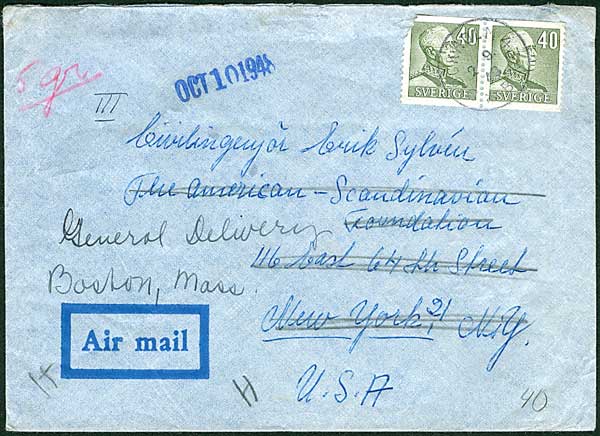 40 40
SVERIGE SVERIGE
5 gr
OCT 10 1948
III
Civilingenjör Erik Sylvén
The American-Scandinavian
Foundation
General Delivery
116 East 64th Street
Boston, Mass.
New York, 21 N.Y.
Air mail
U.S.A
H
40